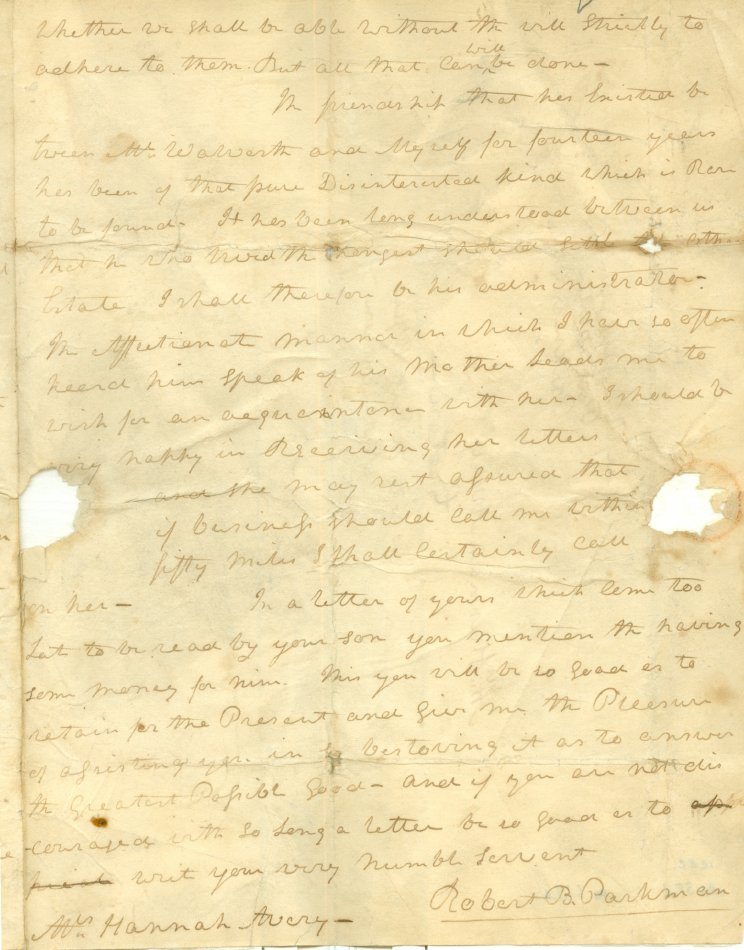 whether we shall be able without th will Strictly to
adhere to them. But all that can will be done -
Th friendship that has Existed be
tween Mr. Walworth and Myself for fourteen years
has been of that pure Disinterested kind which is Rare
to be found - It has been long understood between us
that he who lived th Longest should Settle th oth
Estate I shall therefore be his administrator -
Th Affectionat manner in which I have so often
heard him speak of his Mother Leads me to
wish for an acquaintance with her - I should be
very happy in Receiving her letters
and she may rest assured that
if business should call me within
fifty miles I shall Certainly call
on her - In a letter of yours which Came too
Late to be read by your son you mention th having
some money for him. This you will be so good as to
retain for the Present and give me th Pleasure
of assisting you in so bestowing it as to answer
th Greatest Possible Good - and if you are not dis
couraged with so Long a letter be so good as to
writ your very humble Servent
Robert B. Parkman
Mrs Hannah Avery -